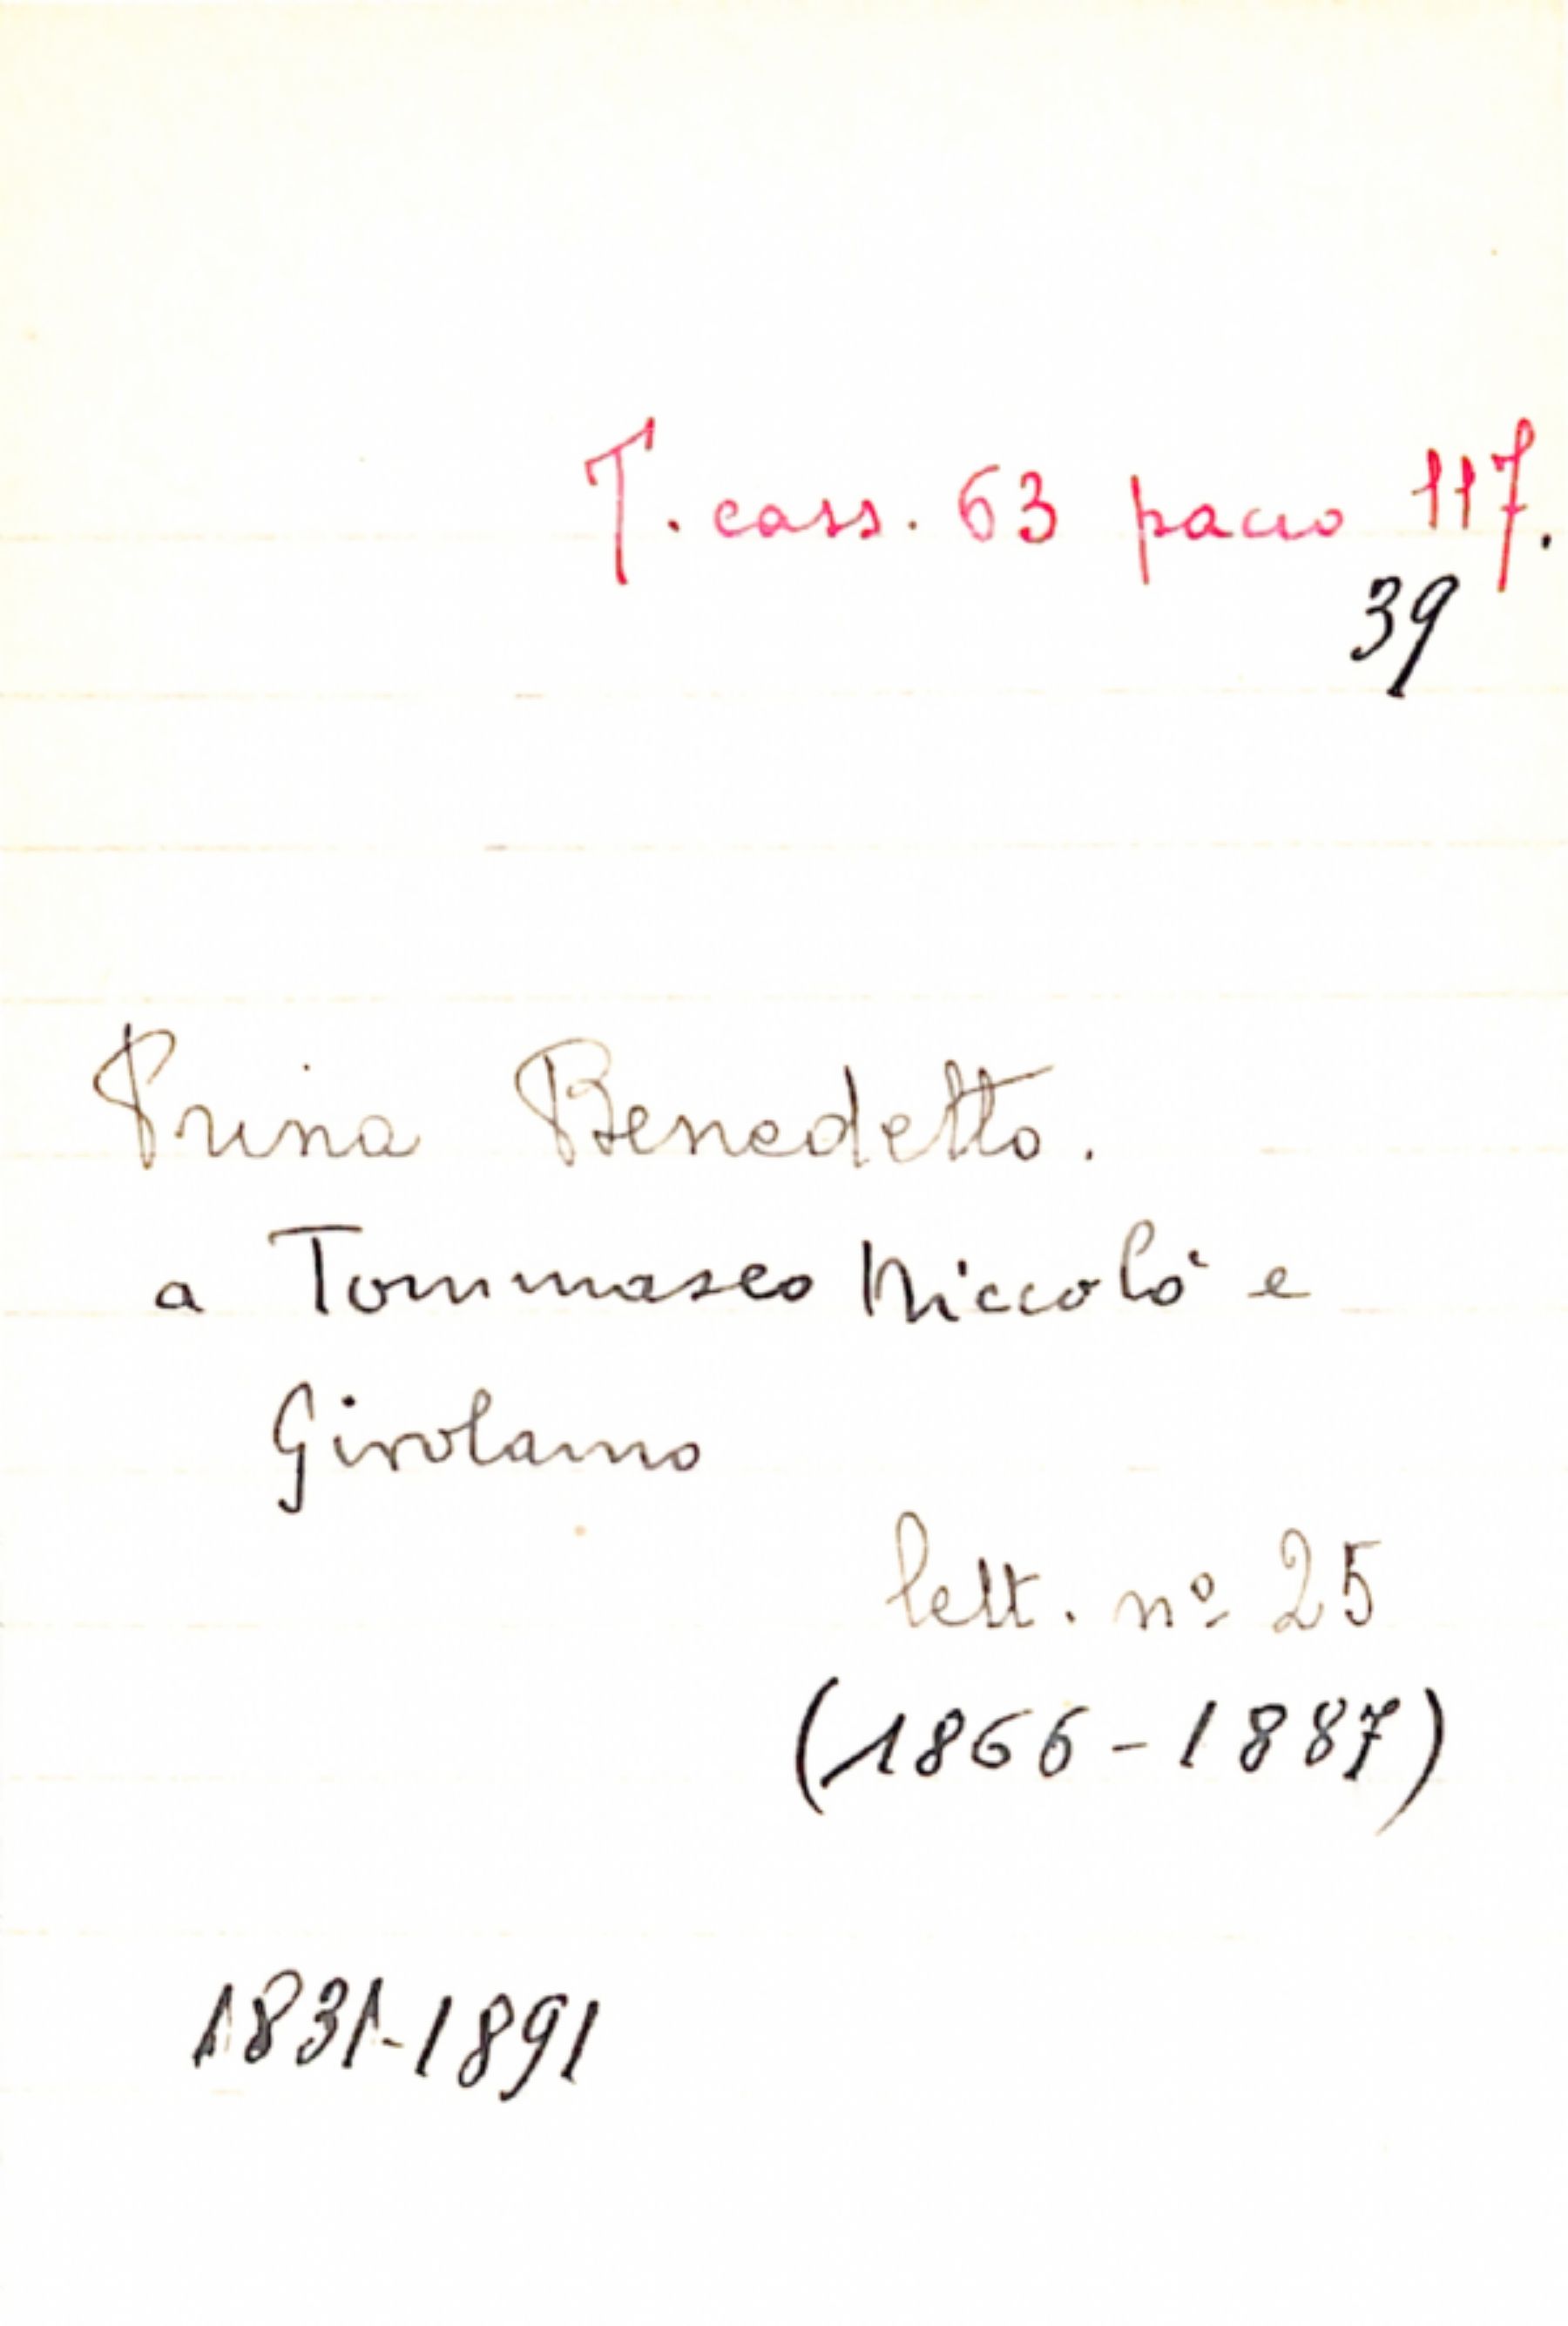 T. cass. 63 pacco 117.
39
Prina Benedetto.
a Tommaseo Niccolò e
Girolamo
lett. nº 25
(1866-1887)
1831-1891